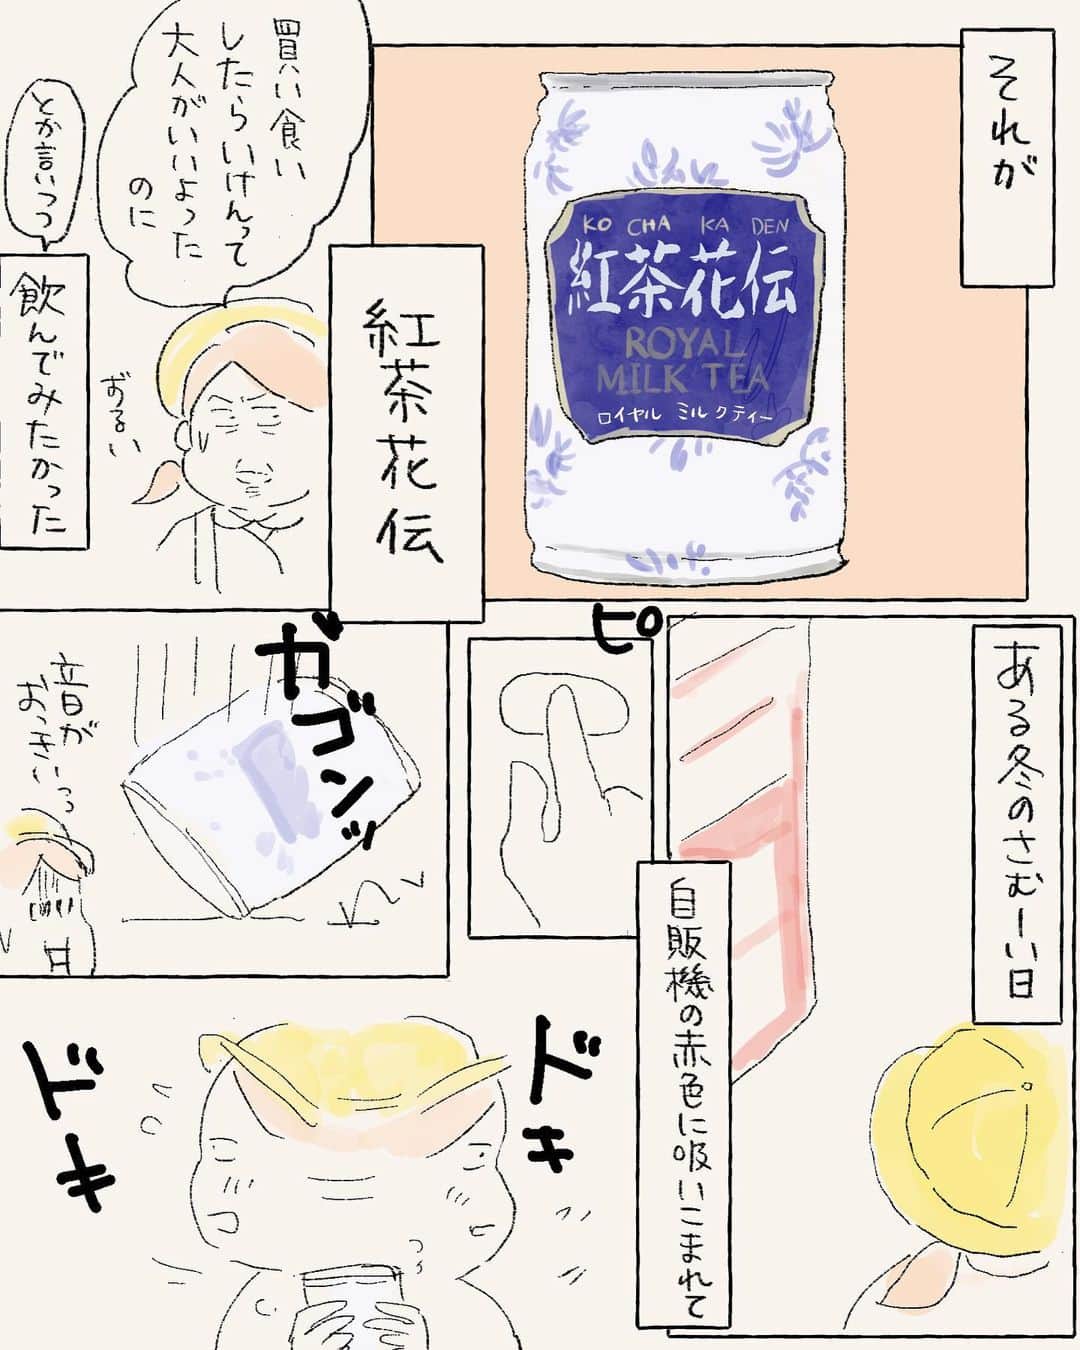 それが
KO CHA KA DEN
紅茶花伝
ROYAL
MILK TEA
ロイヤル ミルクティー
紅茶花伝
買い食い
したらいけんって
大人がいいよった
のに
ずるい
とか言いつつ
飲んでみたかった
ある冬のさむーい日
自販機の赤色に吸いこまれて
ピ
ガゴンッ
音が
おっきいっ
ドキ
ドキ